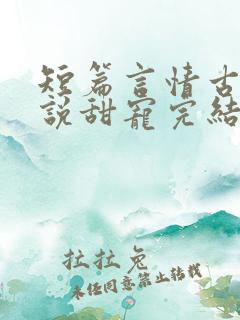 短篇言情古
說甜寵完結
拉拉兔
未经同意禁止转载